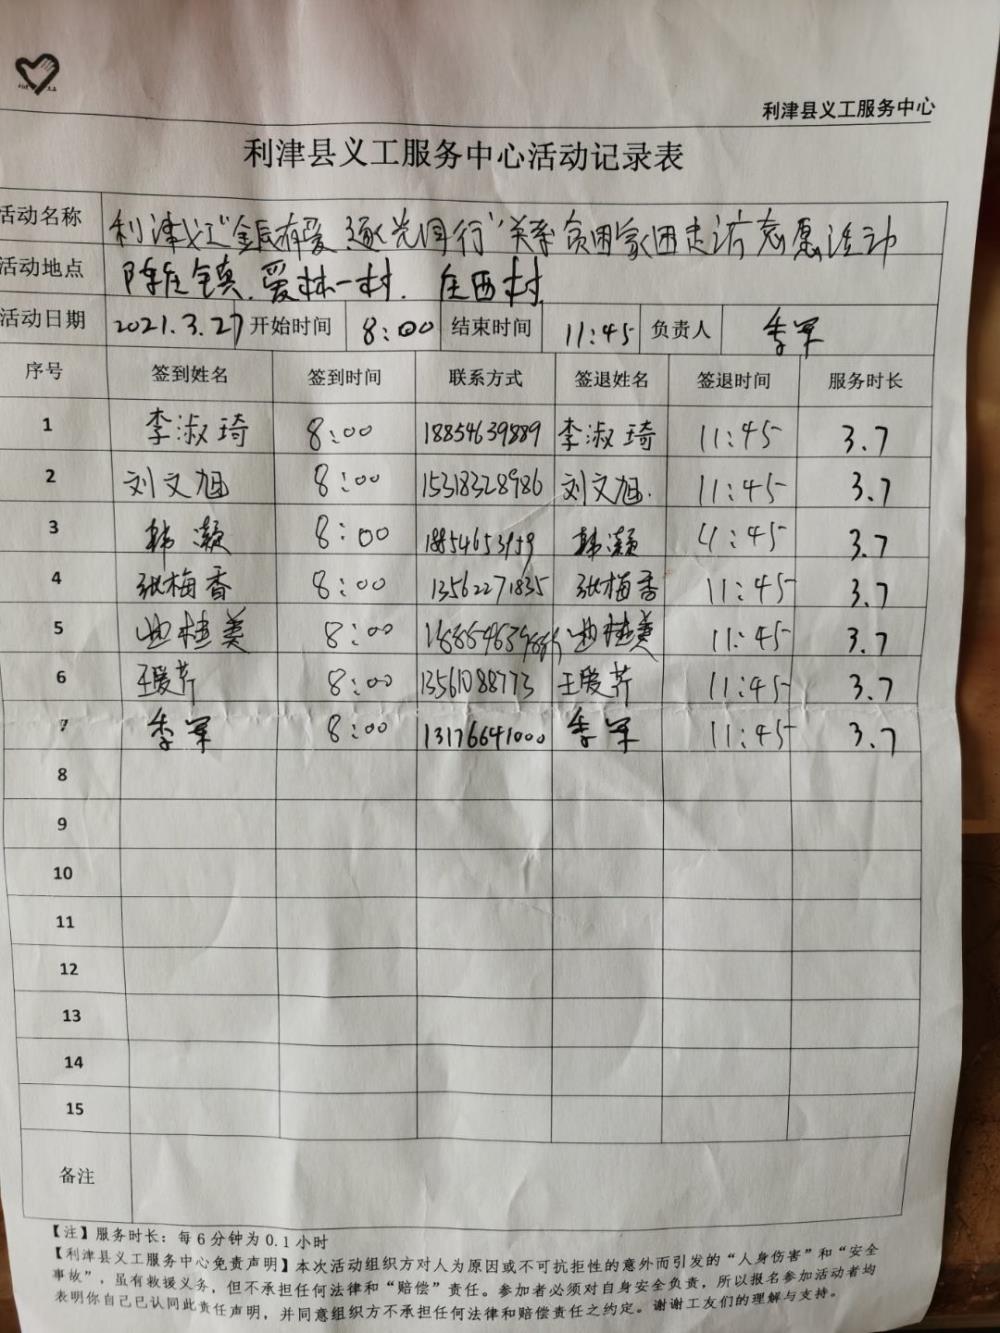 利津县义工服务中心
利津县义工服务中心活动记录表
活动名称 利津义工“ 有爱 逐光同行”关 贫困家 走访志愿活动
活动地点 陈庄镇. 爱林一村. 庄西村
活动日期 2021.3.27 开始时间 8:00 结束时间 11:45 负责人 季军
序号 签到姓名 签到时间 联系方式 签退姓名 签退时间 服务时长
1 李淑琦 8:00 18854639889 李淑琦 11:45 3.7
2 刘文旭 8:00 15318328986 刘文旭. 11:45 3.7
3 韩灏 8:00 韩灏 11:45 3.7
4 张梅香 8:00 13562271835 张梅香 11:45 3.7
5 曲桂美 8:00 曲桂美 11:45 3.7
6 王爱芹 8:00 13561088773 王爱芹 11:45 3.7
7 季军 8:00 13176641000 季军 11:45 3.7
8
9
10
11
12
13
14
15
备注
【注】服务时长：每6分钟为0.1小时
【利津县义工服务中心免责声明】本次活动组织方对人为原因或不可抗拒性的意外而引发的“人身伤害”和“安全
事故”，虽有救援义务，但不承担任何法律和“赔偿”责任。参加者必须对自身安全负责，所以报名参加活动者均
表明你自己已认同此责任声明，并同意组织方不承担任何法律和赔偿责任之约定。谢谢工友们的理解与支持。